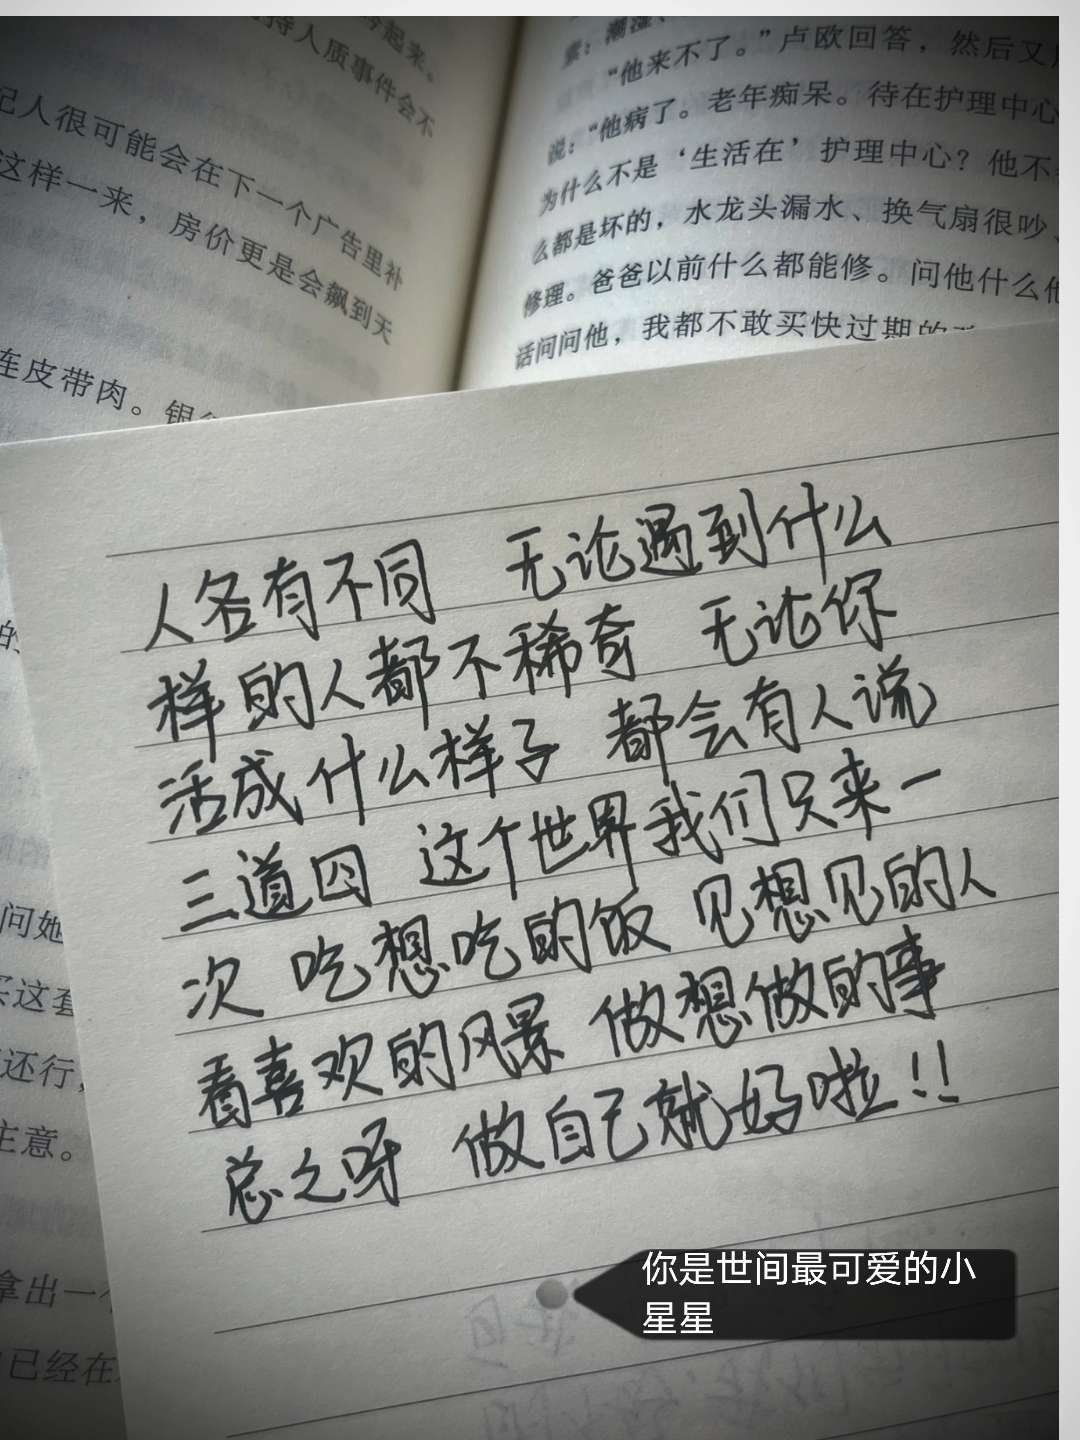 吟起来。
持人质事件会不
纪人很可能会在下一个广告里补
这样一来，房价更是会飙到天
连皮带肉。银
的
问她
买这套
还行，
主意。
拿出一个
已经在
素：潮湿、
“他来不了。”卢欧回答，然后又
说：“他病了。老年痴呆。待在护理中心
为什么不是‘生活在’护理中心？他不
么都是坏的，水龙头漏水、换气扇很吵、
修理。爸爸以前什么都能修。问他什么他
话问问他，我都不敢买快过期的
人各有不同 无论遇到什么
样的人都不稀奇 无论你
活成什么样子 都会有人说
三道四 这个世界我们只来一
次 吃想吃的饭 见想见的人
看喜欢的风景 做想做的事
总之呀 做自己就好啦!!
你是世间最可爱的小
星星